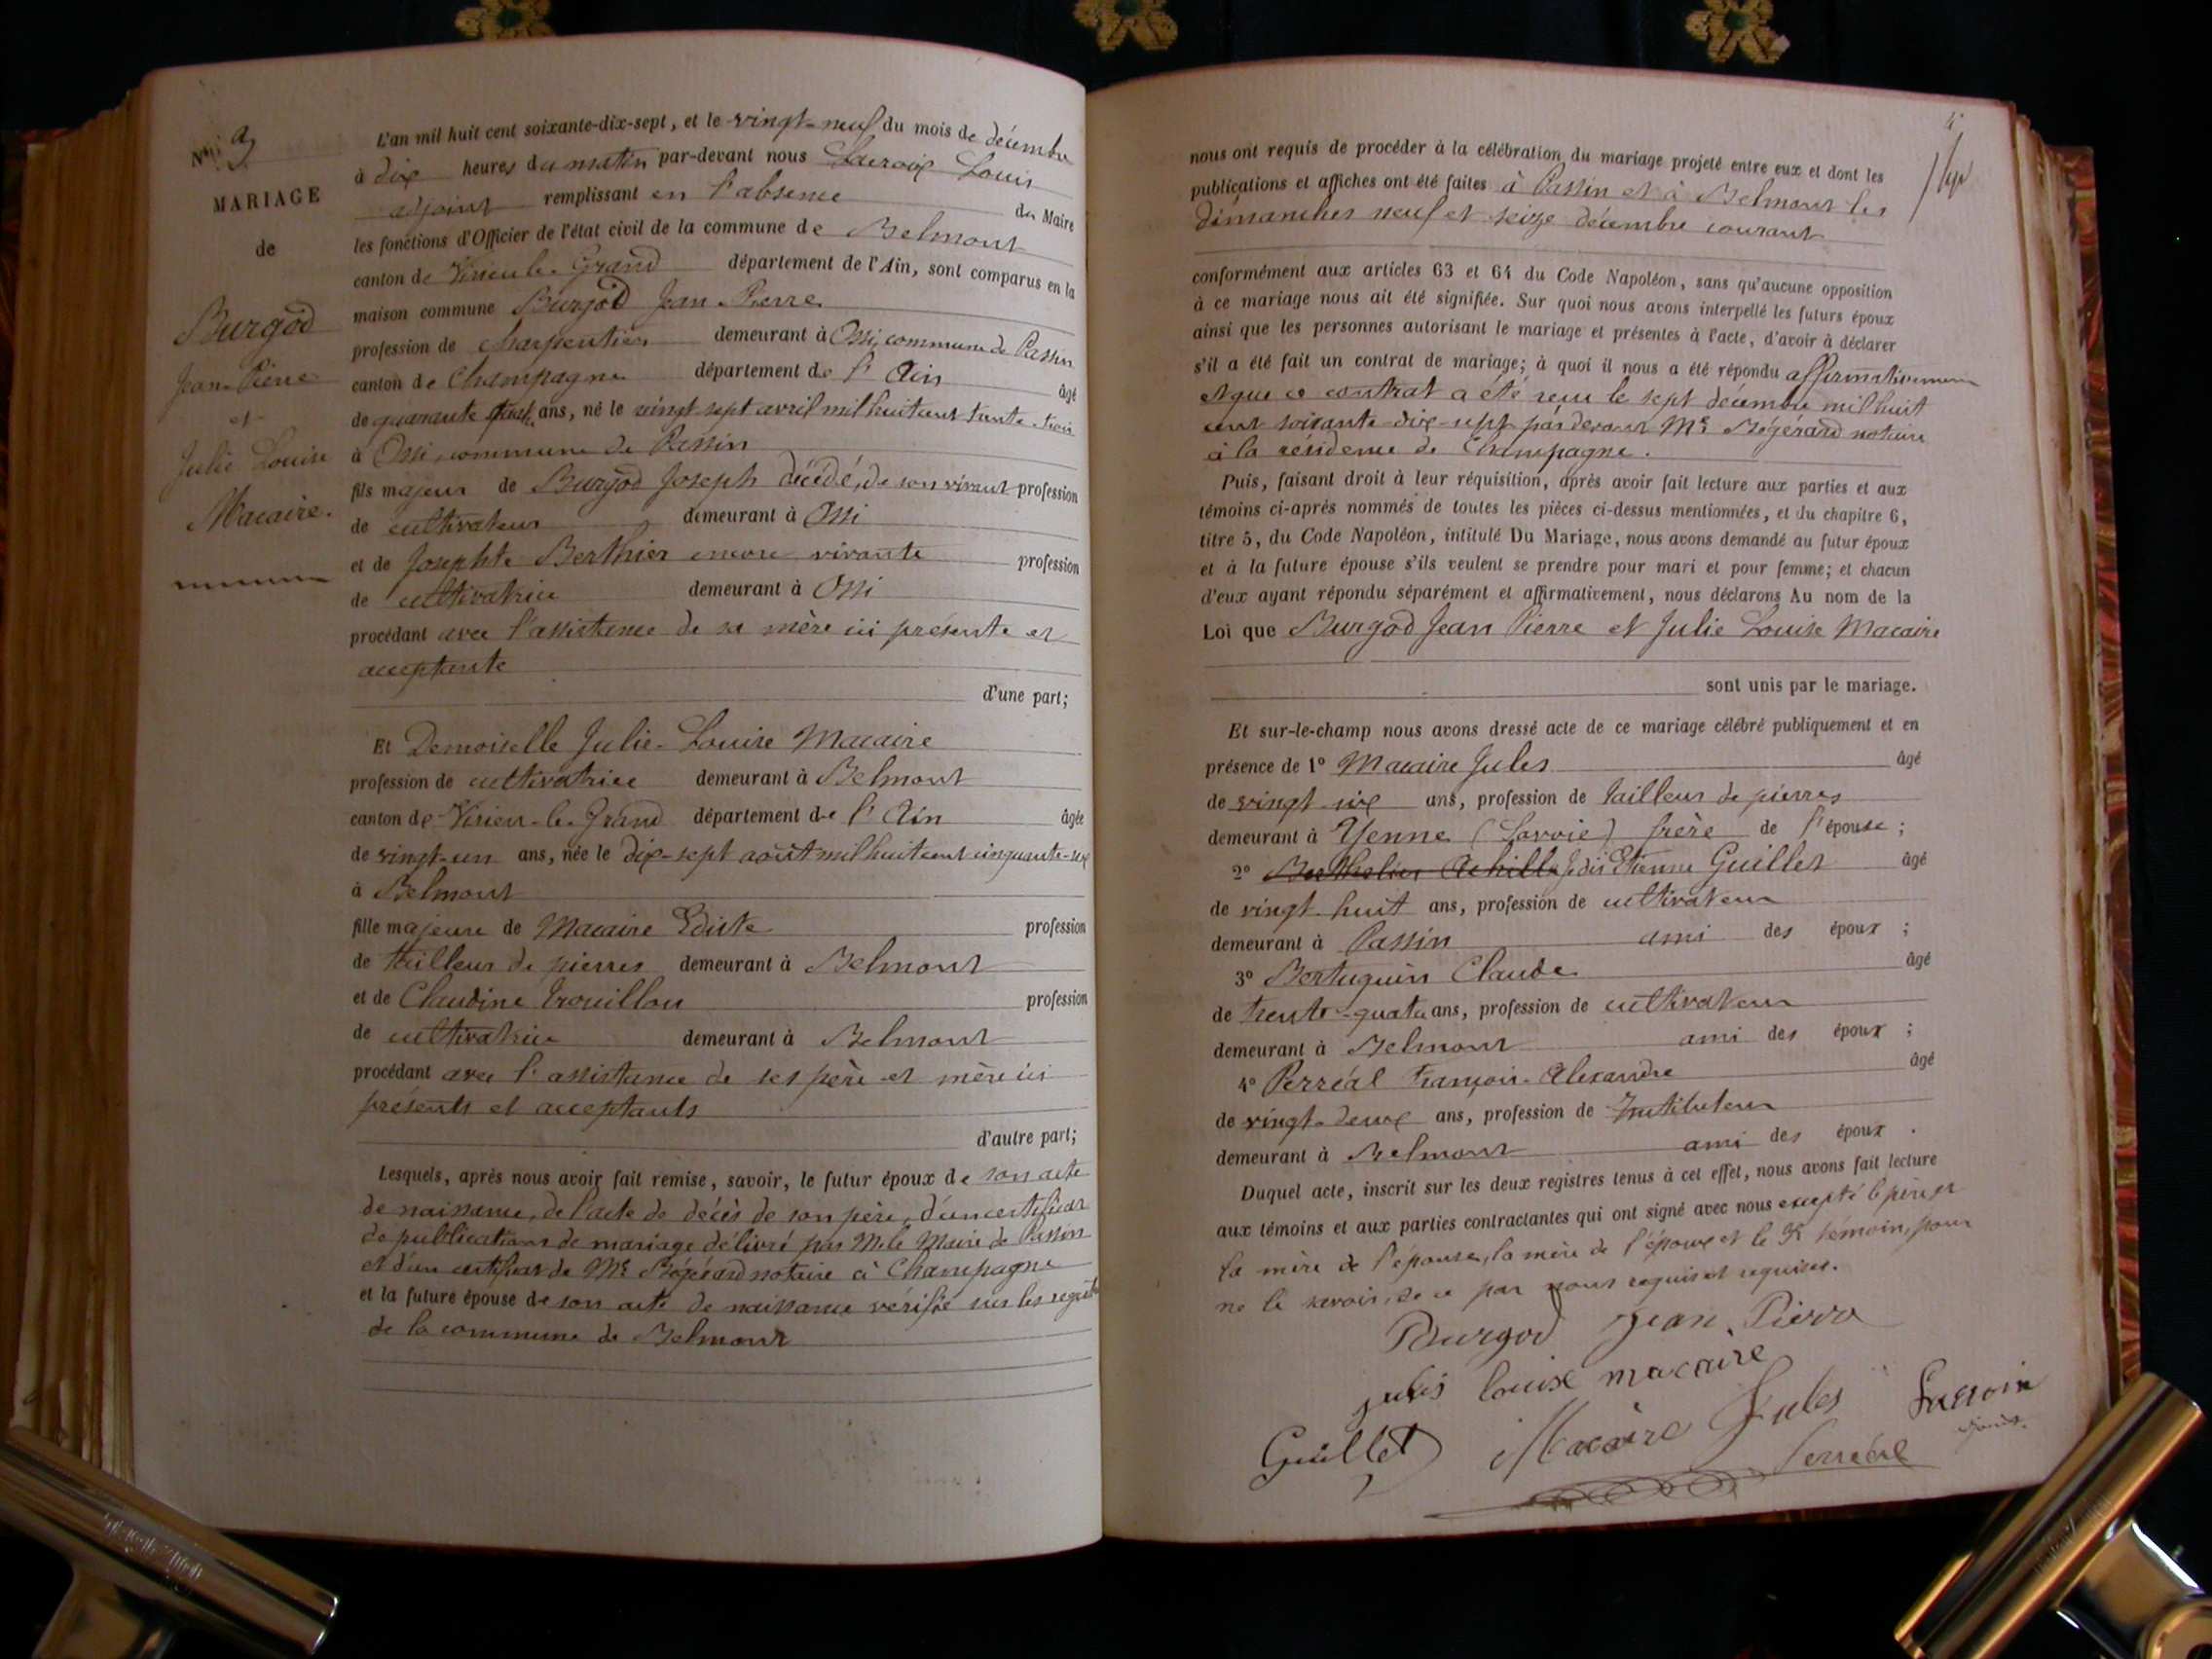 N° 9
MARIAGE
de
Burgod
Jean-Pierre
et
Julie Louise
Macaire.
L'an mil huit cent soixante-dix-sept, et le vingt-neuf du mois de décembre
à dix heures du matin par-devant nous Lacroix Louis
adjoint remplissant en l'absence du Maire
les fonctions d'Officier de l'état civil de la commune de Belmont
canton de Virieu-le-Grand département de l'Ain, sont comparus en la
maison commune Burgod Jean-Pierre
profession de charpentier demeurant à Ossi, commune de Passin
canton de Champagne département de l'Ain âgé
de quarante quatre ans, né le vingt sept avril mil huit cent trente-trois
à Ossi, commune de Passin
fils majeur de Burgod Joseph décédé, de son vivant profession
de cultivateur demeurant à Ossi
et de Josephte Berthier encore vivante profession
de cultivatrice demeurant à Ossi
procédant avec l'assistance de sa mère ici présente et
acceptante
d'une part;
Et Demoiselle Julie-Louise Macaire
profession de cultivatrice demeurant à Belmont
canton de Virieu-le-Grand département de l'Ain âgée
de vingt-un ans, née le dix-sept août mil huit cent cinquante-six
à Belmont
fille majeure de Macaire Édiste profession
de tailleur de pierres demeurant à Belmont
et de Claudine Trouillou profession
de cultivatrice demeurant à Belmont
procédant avec l'assistance de ses père et mère ici
présents et acceptants
d'autre part;
Lesquels, après nous avoir fait remise, savoir, le futur époux de son acte
de naissance, de l'acte de décès de son père, d'un certificat
de publications de mariage délivré par M. le Maire de Passin
et d'un certificat de Mᵉ notaire à Champagne
et la future épouse de son acte de naissance vérifié sur les registres
de la commune de Belmont
nous ont requis de procéder à la célébration du mariage projeté entre eux et dont les
publications et affiches ont été faites à Passin et à Belmont les
dimanches neuf et seize décembre courant
conformément aux articles 63 et 64 du Code Napoléon, sans qu'aucune opposition
à ce mariage nous ait été signifiée. Sur quoi nous avons interpellé les futurs époux
ainsi que les personnes autorisant le mariage et présentes à l'acte, d'avoir à déclarer
s'il a été fait un contrat de mariage; à quoi il nous a été répondu affirmativement
et que ce contrat a été reçu le sept décembre mil huit
cent soixante dix-sept par devant Mᵉ notaire
à la résidence de Champagne.
Puis, faisant droit à leur réquisition, après avoir fait lecture aux parties et aux
témoins ci-après nommés de toutes les pièces ci-dessus mentionnées, et du chapitre 6,
titre 5, du Code Napoléon, intitulé Du Mariage, nous avons demandé au futur époux
et à la future épouse s'ils veulent se prendre pour mari et pour femme; et chacun
d'eux ayant répondu séparément et affirmativement, nous déclarons Au nom de la
Loi que Burgod Jean Pierre et Julie Louise Macaire
sont unis par le mariage.
Et sur-le-champ nous avons dressé acte de ce mariage célébré publiquement et en
présence de 1° Macaire Jules âgé
de vingt-six ans, profession de tailleur de pierres
demeurant à Yenne (Savoie) frère de l'épouse;
2° Berthelier Achille Je dis Etienne Guillet âgé
de vingt-huit ans, profession de cultivateur
demeurant à Passin ami des époux;
3° Bertuquin Claude âgé
de trente-quatre ans, profession de cultivateur
demeurant à Belmont ami des époux;
4° Perréal François-Alexandre âgé
de vingt-deux ans, profession de Instituteur
demeurant à Belmont ami des époux.
Duquel acte, inscrit sur les deux registres tenus à cet effet, nous avons fait lecture
aux témoins et aux parties contractantes qui ont signé avec nous excepté le père et
la mère de l'épouse, la mère de l'époux et le témoin, pour
ne le savoir, de ce par nous requis et requises.
Burgod Jean Pierre
julie louise macaire
Guillet Macaire Jules Lacroix
adjoint.
Perréal